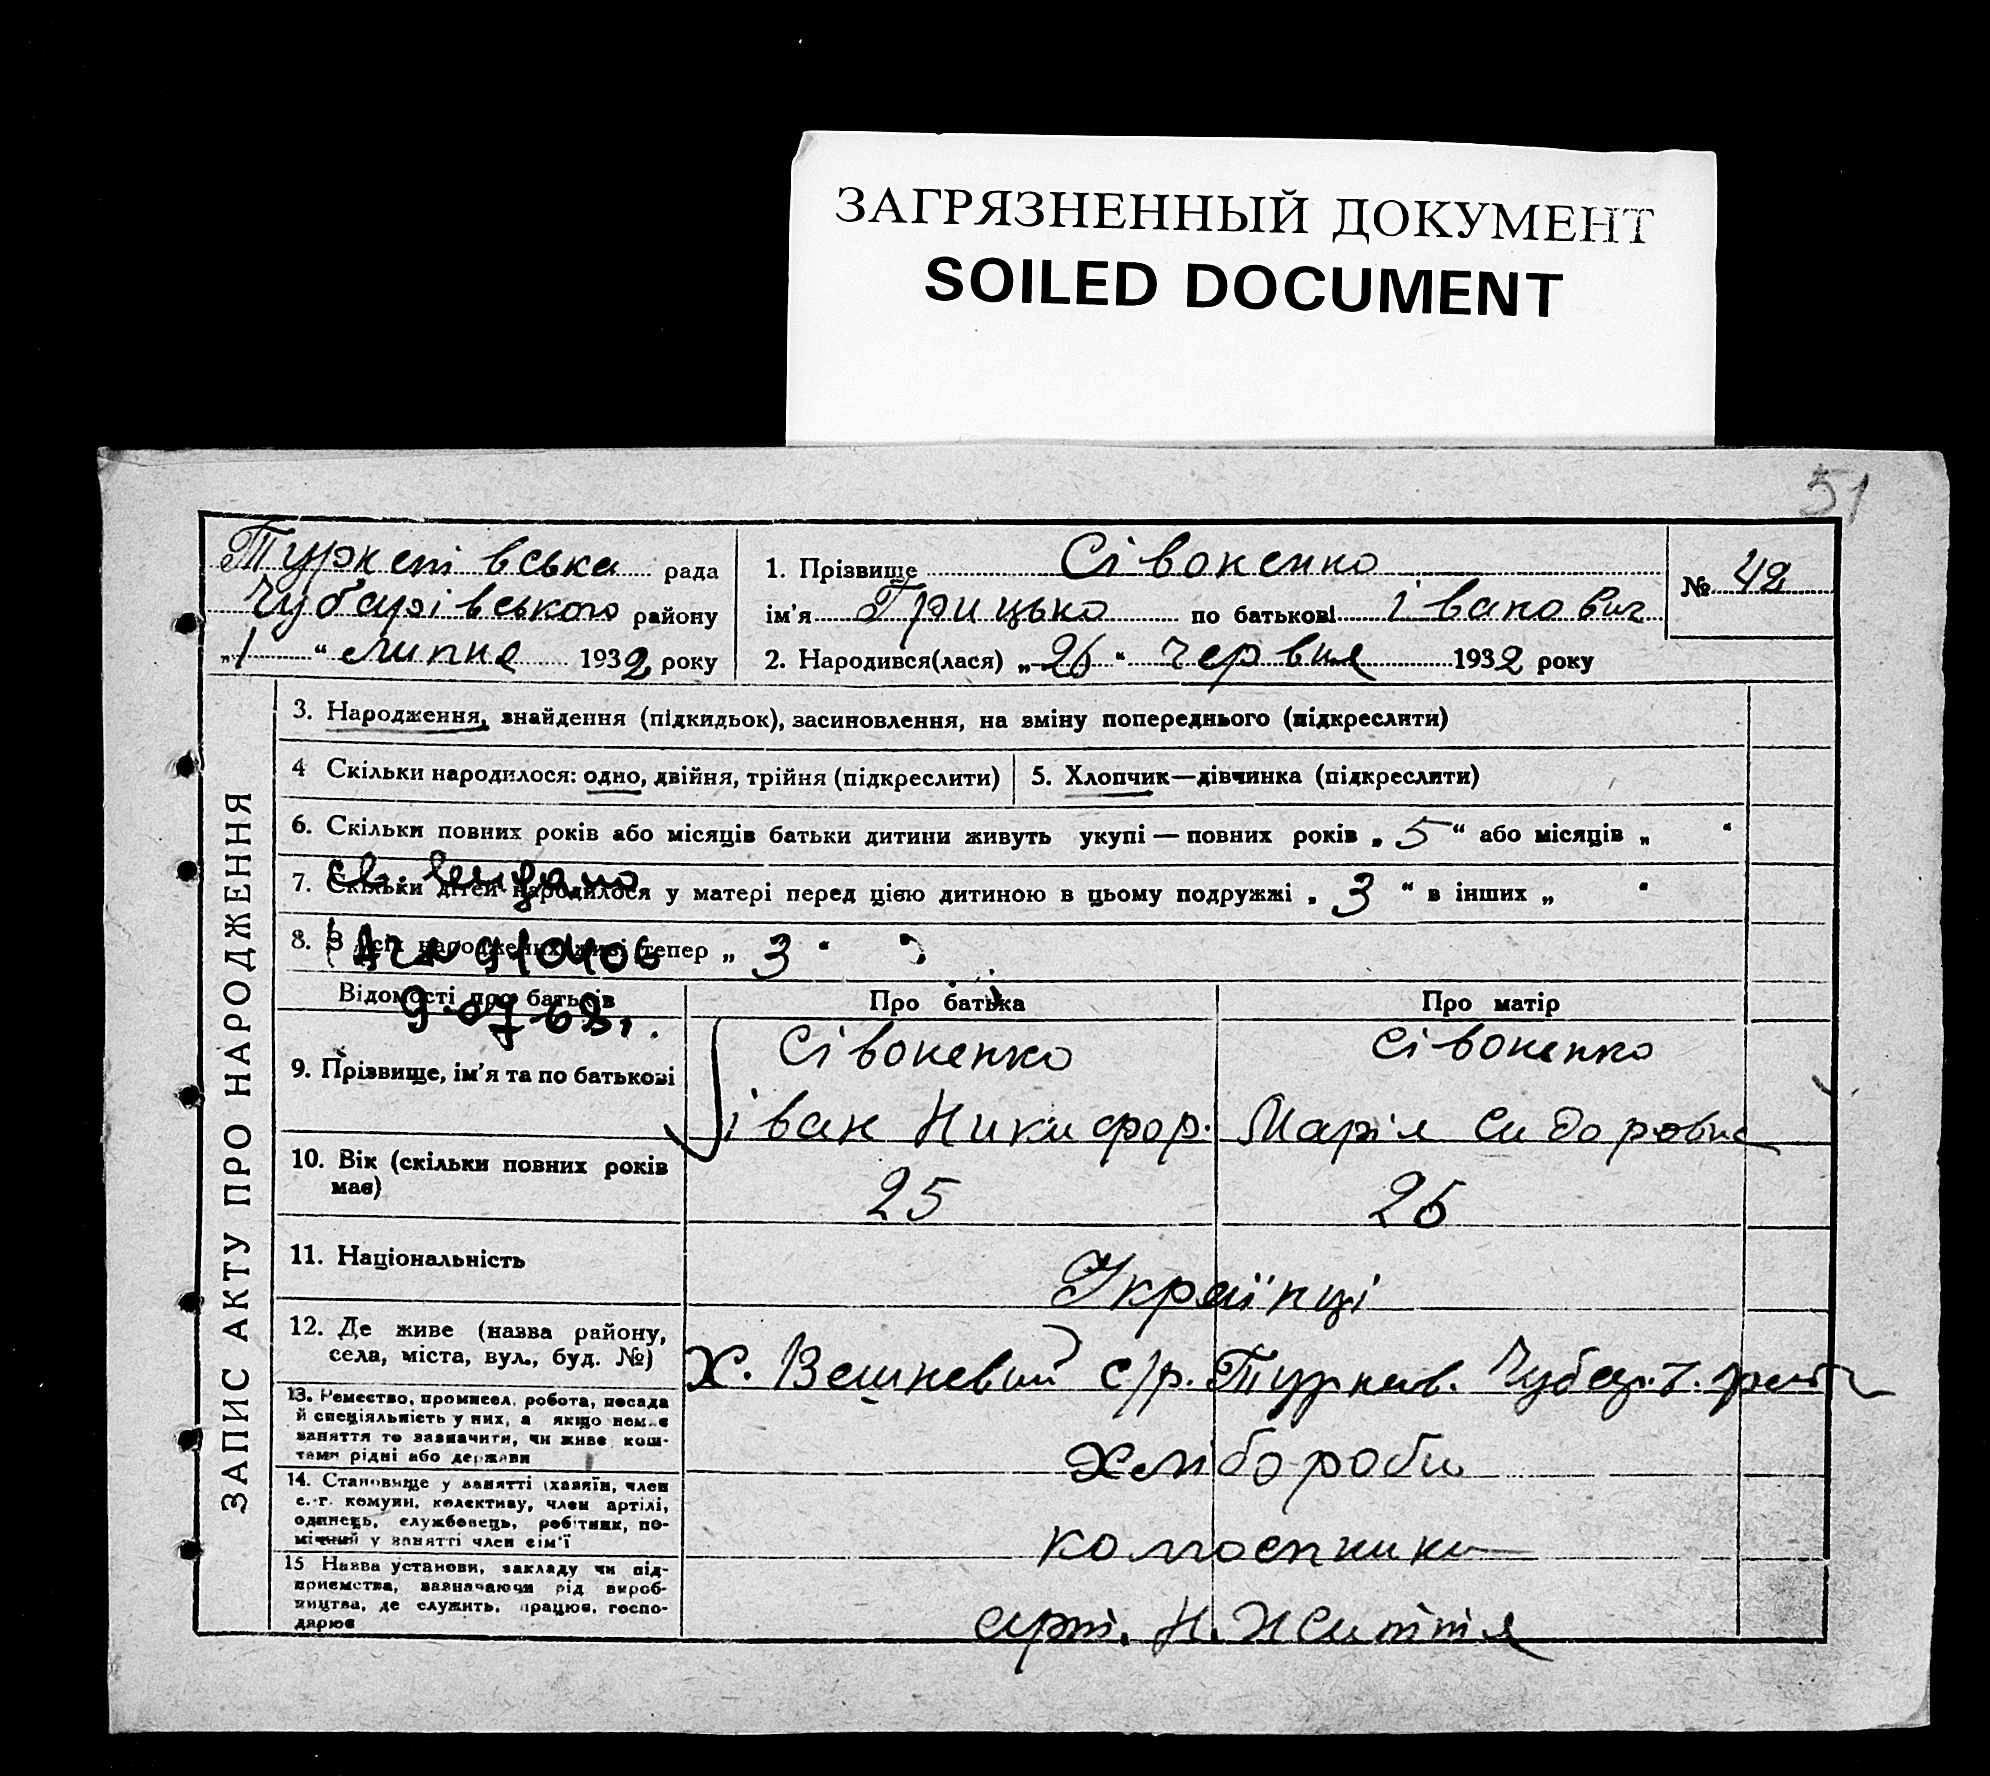 ЗАГРЯЗНЕННЫЙ ДОКУМЕНТ
SOILED DOCUMENT
51
Туркенівська рада
Чубарівського району
„1“ липня 1932 року
1. Прізвище Сівоненко
ім'я Грицько по батькові Іванович
№ 42
2. Народився(лася) „26“ червня 1932 року
ЗАПИС АКТУ ПРО НАРОДЖЕННЯ
3. Народження, знайдення (підкидьок), засиновлення, на зміну попереднього (підкреслити)
4 Скільки народилося: одно, двійня, трійня (підкреслити)
5. Хлопчик—дівчинка (підкреслити)
6. Скільки повних років або місяців батьки дитини живуть укупі — повних років „5“ або місяців „ “
7. Скільки дітей народилося у матері перед цією дитиною в цьому подружжі „3“ в інших „ “
8. З усіх народжених живі тепер „3“
9.07.68
Відомості про батьків
Про батька
Про матір
9. Прізвище, ім'я та по батькові
Сівоненко
Іван Никифор.
Сівоненко
Марія Сидоровна
10. Вік (скільки повних років має)
25
26
11. Національність
Українці
12. Де живе (назва району,
села, міста, вул., буд. №)
Х. Вешневий с/р. Туркен.
13. Ремество, промисел, робота, посада
й спеціяльність у них, а якщо немає
заняття то зазначити, чи живе кош-
тами рідні або держави
хлібороби
14. Становище у занятті (хазяїн, член
с.-г. комуни, колективу, член артілі,
одинець, службовець, робітник, по-
мічний у занятті член сім'ї
колгоспники
15 Назва установи, закладу чи під-
приємства, зазначаючи рід вироб-
ництва, де служить, працює, госпо-
дарює
арт. Н. Життя